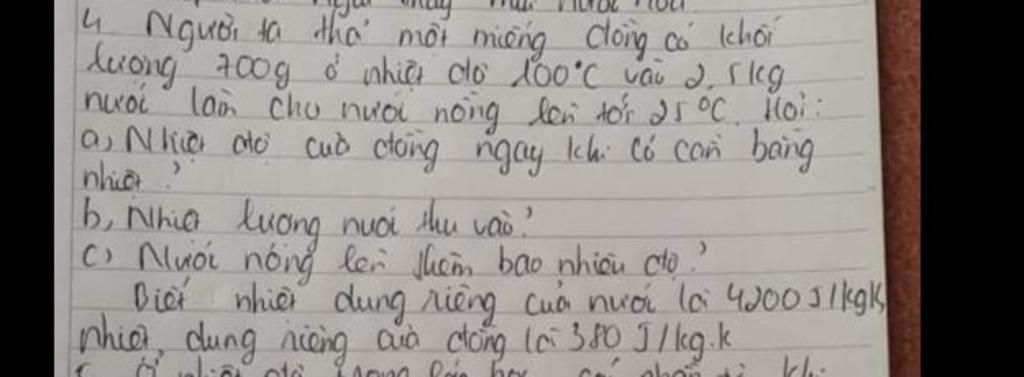 4. Người ta thả một miếng đồng có khối
lượng 700g ở nhiệt độ 100°C vào 2,5kg
nước làm cho nước nóng lên tới 25°C. Hỏi:
a, Nhiệt độ của đồng ngay khi có cân bằng
nhiệt?
b, Nhiệt lượng nước thu vào?
c) Nước nóng lên thêm bao nhiêu độ?
Biết nhiệt dung riêng của nước là 4200 J/kgK,
nhiệt dung riêng của đồng là 380 J/kg.k